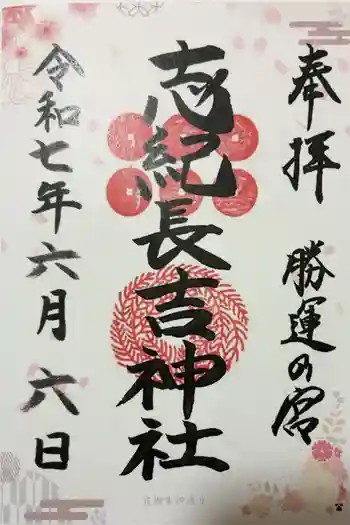 奉拝　勝運の宮
志紀長吉神社
令和七年六月六日